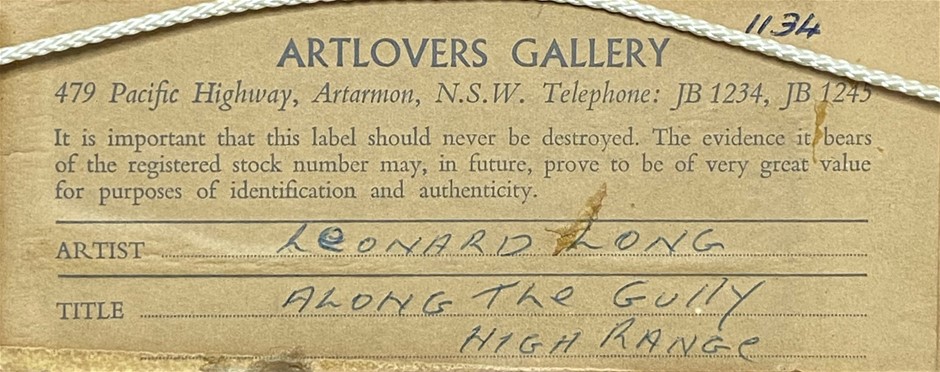 1134
ARTLOVERS GALLERY
479 Pacific Highway, Artarmon, N.S.W. Telephone: JB 1234, JB 1245
It is important that this label should never be destroyed. The evidence it bears
of the registered stock number may, in future, prove to be of very great value
for purposes of identification and authenticity.
ARTIST LeONARD LONG
TITLE ALONG The GUllY
HIGH RANGe